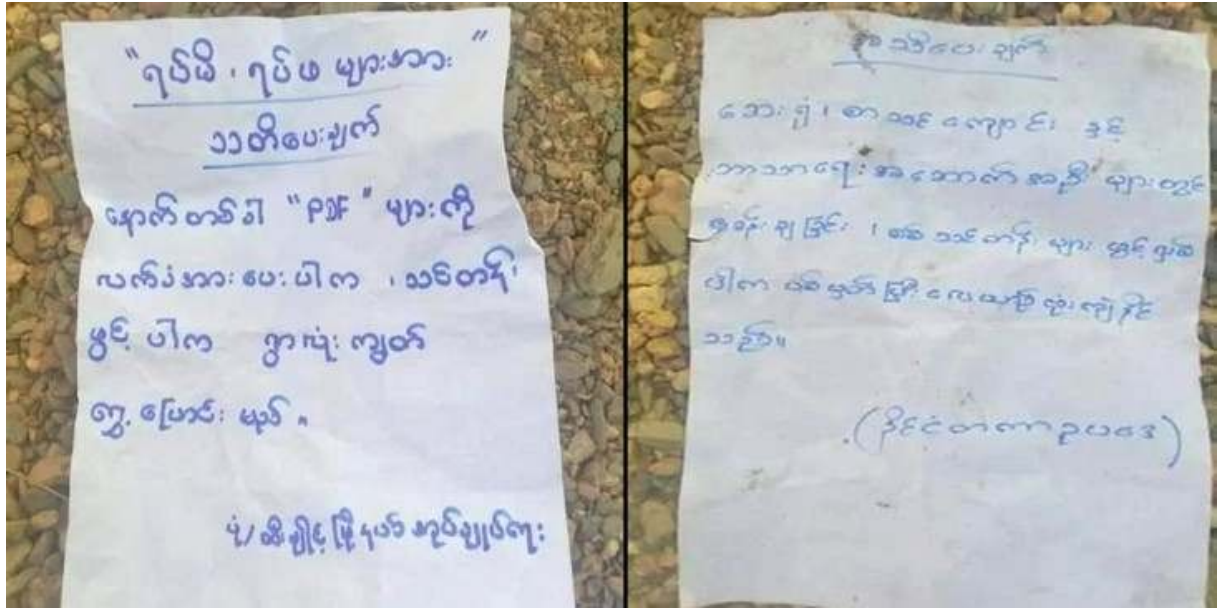 "ရပ်မိ၊ ရပ်ဖ များအား"
သတိပေးချက်
နောက်တစ်ခါ "PDF" များကို
လက်ခံအားပေးပါက ၊ သင်တန်း
ဖွင့်ပါက ရွာလုံးကျွတ်
ရွှေ့ပြောင်းမည်။
ပုံ/ဆီးချိုင့်မြို့နယ်အုပ်ချုပ်ရေး
သတိပေးချက်
ဆေးရုံ၊ စာသင်ကျောင်း နှင့်
ဘာသာရေးအဆောက်အဦ များတွင်
စခန်းချခြင်း ၊ သင်တန်း များ ဖွင့်
ပါက ပစ်မှတ်ပြီး လေယာဉ်ဗုံးကျဲနိုင်
သည်။
(နိုင်ငံတကာဥပဒေ)